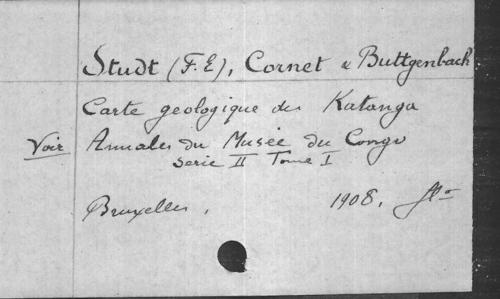 Studt (F.E), Cornet & Buttgenbach
Carte geologique du Katanga
Voir Annales du Musée du Congo
Serie II Tome I
Bruxelles, 1908. fº